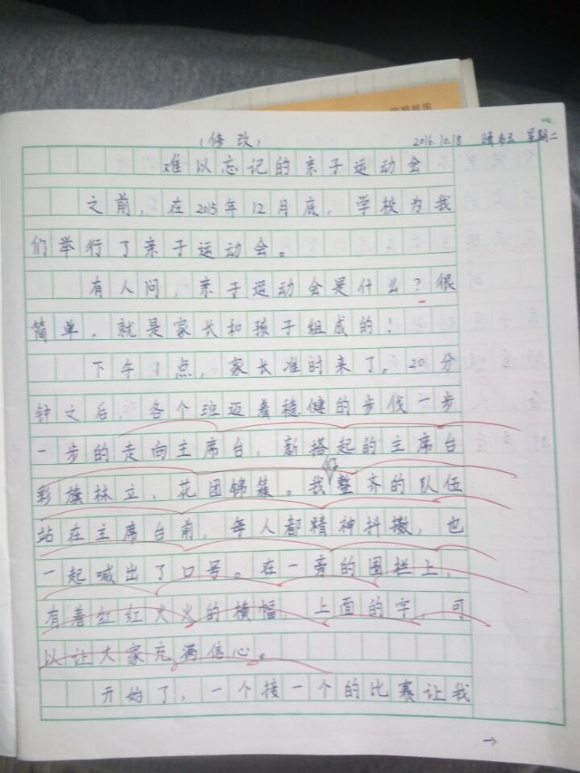 (修改) 2016.10.18 星期二
难以忘记的亲子运动会
之前，在2015年12月底，学校为我
们举行了亲子运动会。
有人问，亲子运动会是什么？很
简单，就是家长和孩子组成的！
下午1点，家长准时来了。20分
钟之后，各个班迈着稳健的步伐一步
一步的走向主席台，新搭起的主席台
彩旗林立，花团锦簇。我们整齐的队伍
站在主席台前，每人都精神抖擞，也
一起喊出了口号。在一旁的围栏上，
有着红红火火的横幅，上面的字，可
以让大家充满信心。
开始了，一个接一个的比赛让我
→